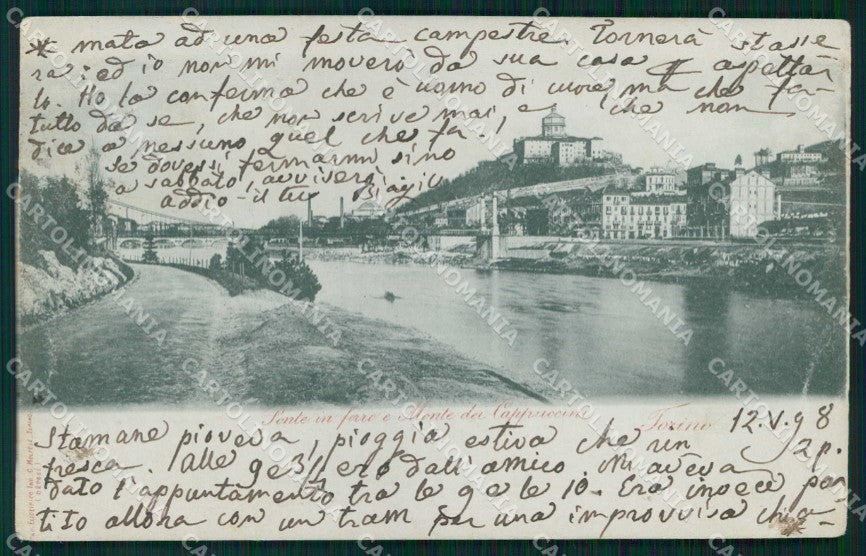 Torino 12.V.98
2 p.
Stamane pioveva, pioggia estiva che rin
fresca. Alle 9e3/4 ero dall'amico. Mi aveva
dato l'appuntamento tra le 9 e le 10. Era invece par
tito allora con un tram per una improvvisa chia-
* mata ad una festa campestre. Tornerà stasse
ra: ed io non mi moverò da sua casa aspettar
lo. Ho la conferma che è uomo di cuore, ma che fa
tutto da se, che non scrive mai, e che non
dice a nessuno quel che fa.
Se dovessi fermarmi sino
a sabbato, avviserei
addio - il tuo Biagio
Ponte in ferro e Monte dei Cappuccini
CARTOLINOMANIA